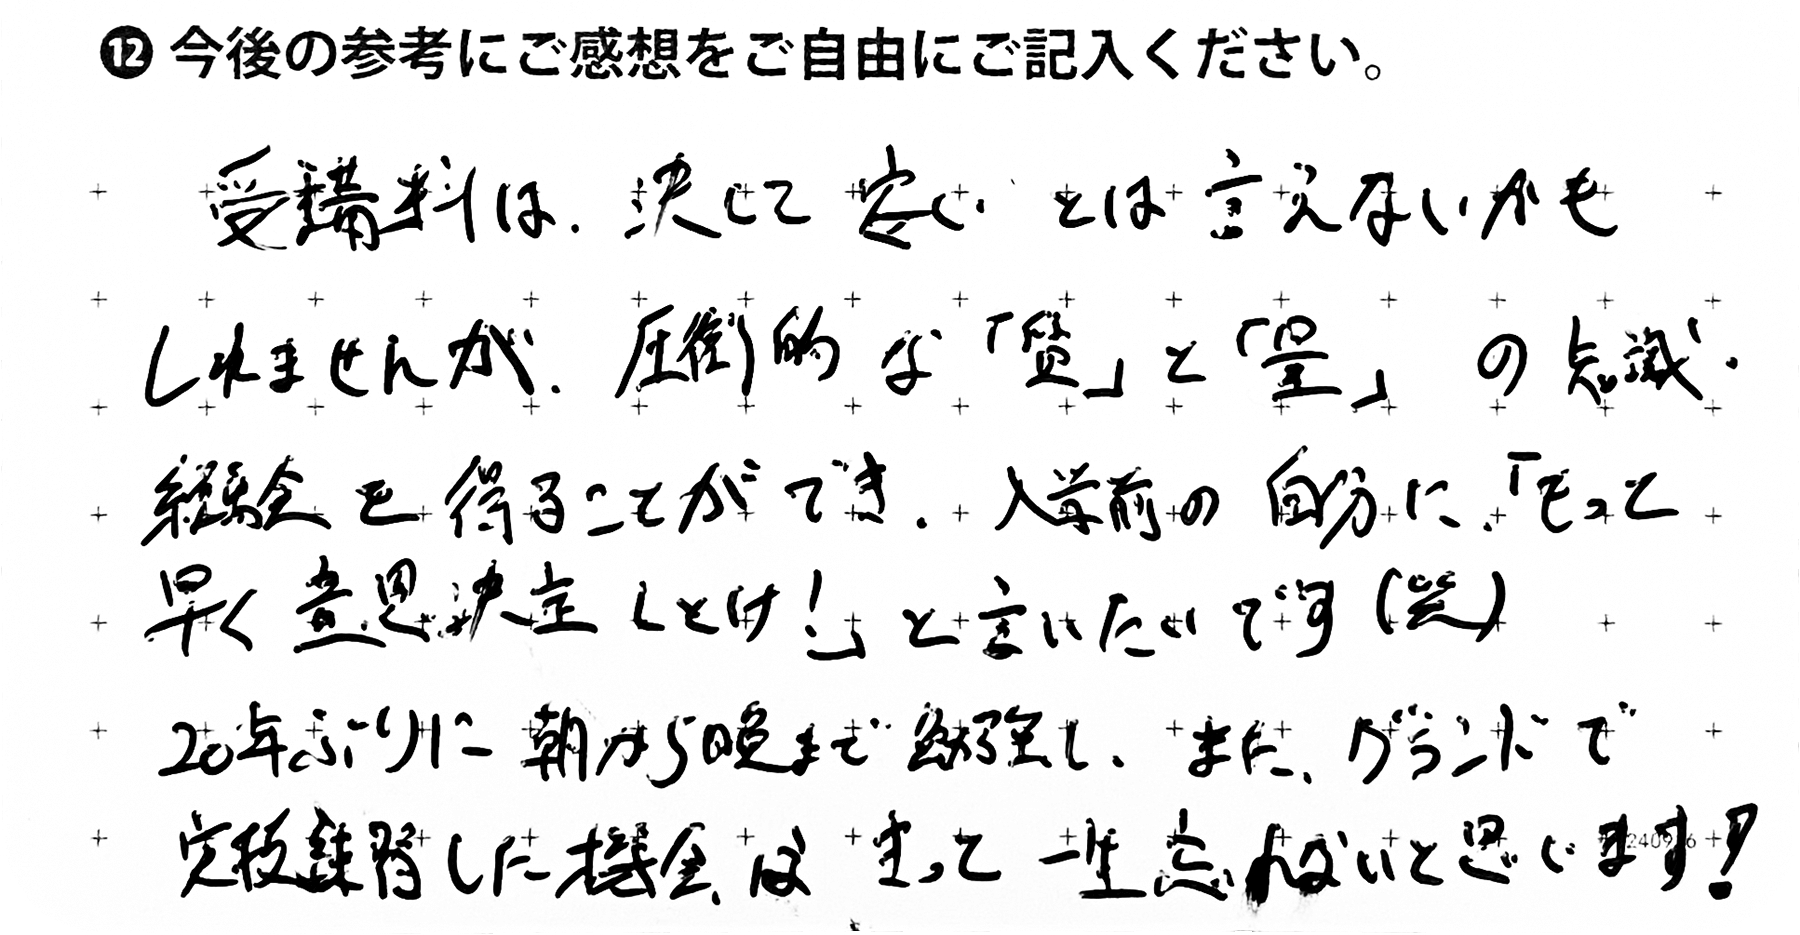 ⓬今後の参考にご感想をご自由にご記入ください。
受講料は、決して安いとは言えないかも
しれませんが、圧倒的な「質」と「量」の知識・
経験を得ることができ、入学前の自分に、「もって
早く意思決定しとけ!」と言いたいです(笑)
20年ぶりに朝から晩まで勉強し、また、グランドで
実技練習した機会は きっと一生忘れないと思います!